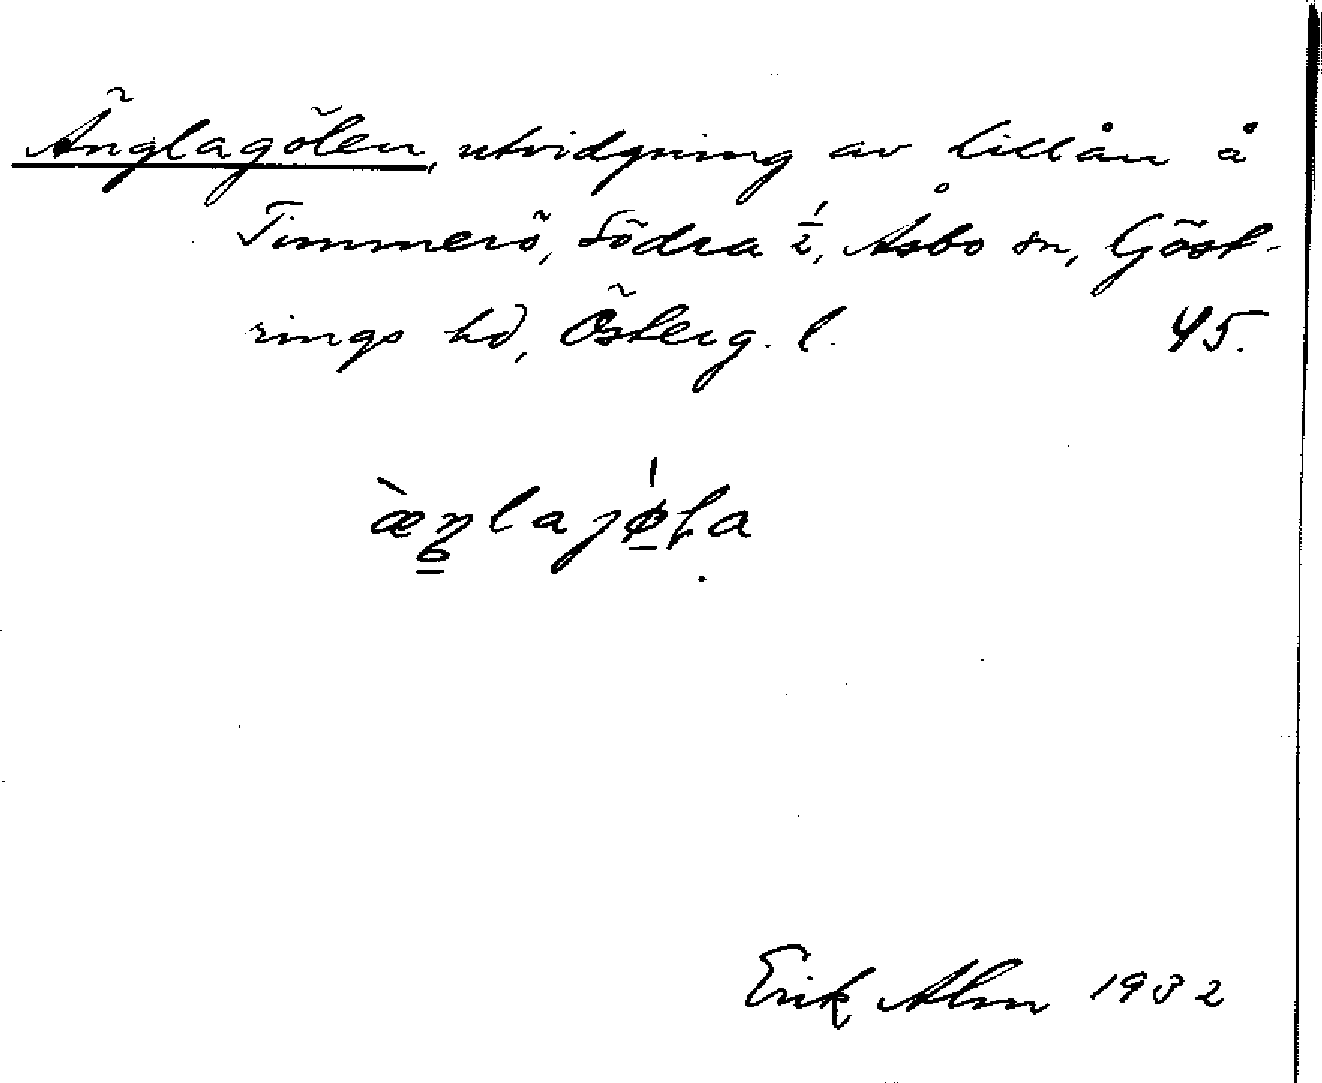 Änglagölen, utvidgning av Lillån å
Timmerö, Södra ½, Åsbo sn, Göst-
rings hd, Österg. l. 45.
Erik Alm 1932